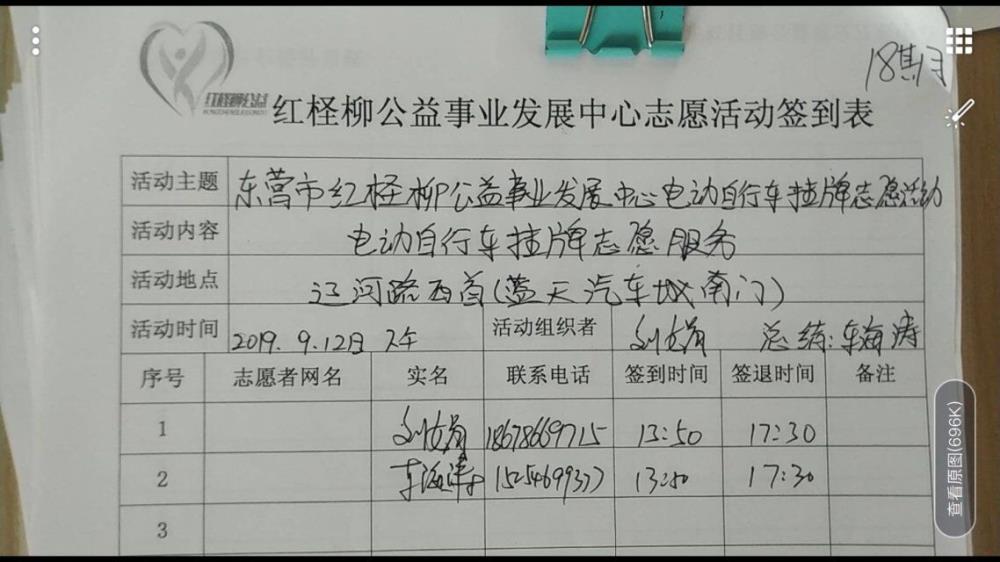 18期
红柽柳公益
红柽柳公益事业发展中心志愿活动签到表
活动主题 东营市红柽柳公益事业发展中心电动自行车挂牌志愿活动
活动内容 电动自行车挂牌志愿服务
活动地点 辽河路西首(蓝天汽车城南门)
活动时间 2019.9.12日 下午 活动组织者 总结:车海涛
序号 志愿者网名 实名 联系电话 签到时间 签退时间 备注
1 18678669715 13:50 17:30
2 车海涛 15254699377 13:50 17:30
3
查看原图(696K)